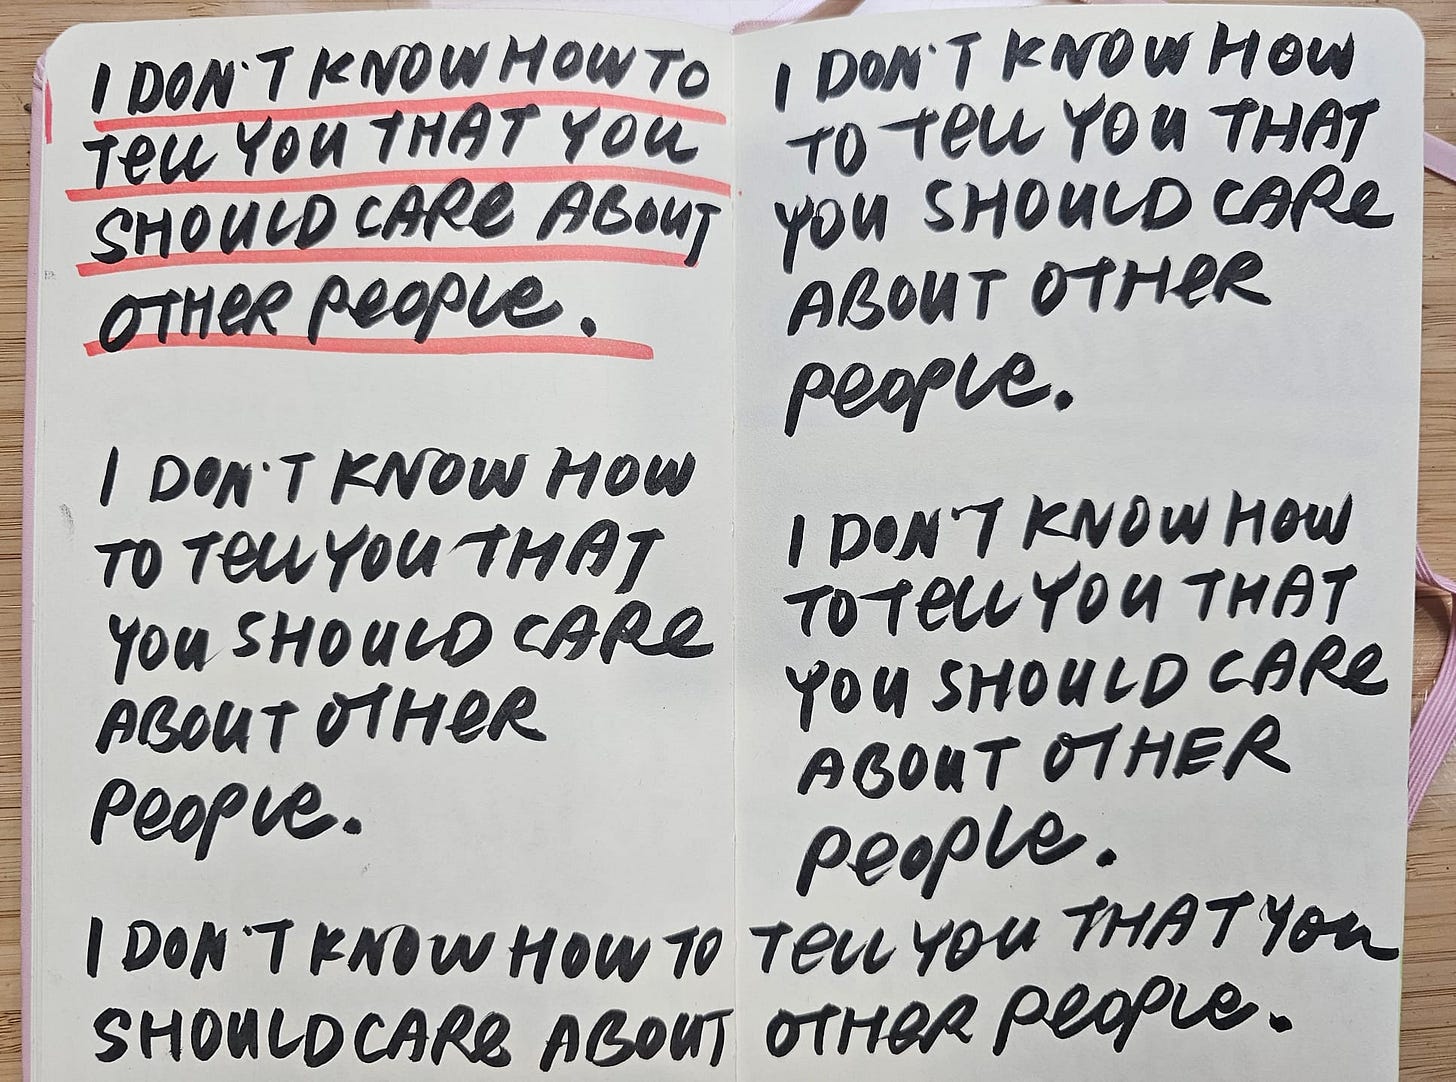 I DON'T KNOW HOW TO
TELL YOU THAT YOU
SHOULD CARE ABOUT
OTHER PEOPLE.
I DON'T KNOW HOW
TO TELL YOU THAT
YOU SHOULD CARE
ABOUT OTHER
PEOPLE.
I DON'T KNOW HOW
TO TELL YOU THAT
YOU SHOULD CARE
ABOUT OTHER
PEOPLE.
I DON'T KNOW HOW
TO TELL YOU THAT
YOU SHOULD CARE
ABOUT OTHER
PEOPLE.
I DON'T KNOW HOW TO TELL YOU THAT YOU
SHOULD CARE ABOUT OTHER PEOPLE.